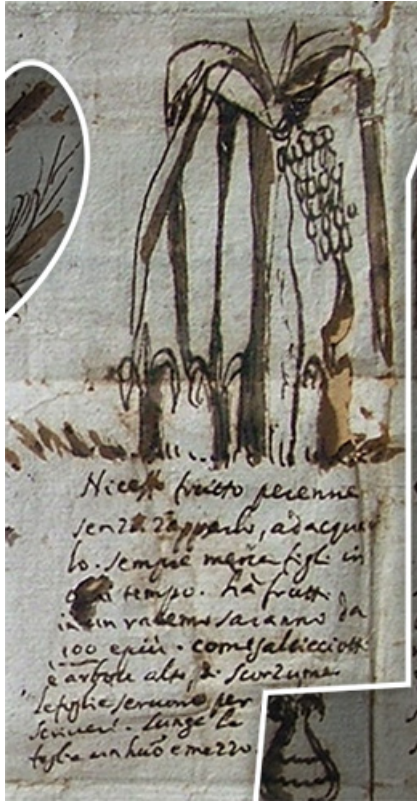 Niceffo frutto perenne
senza zapparlo, adacquar
lo. sempre mena figli in
ogni tempo. hà frutti
in un racemo saranno da
100 e più. come salcicciotti
è arbore alto, di scorza
le foglie servono per
scrivere. lunge la
foglia un huõ e mezzo.